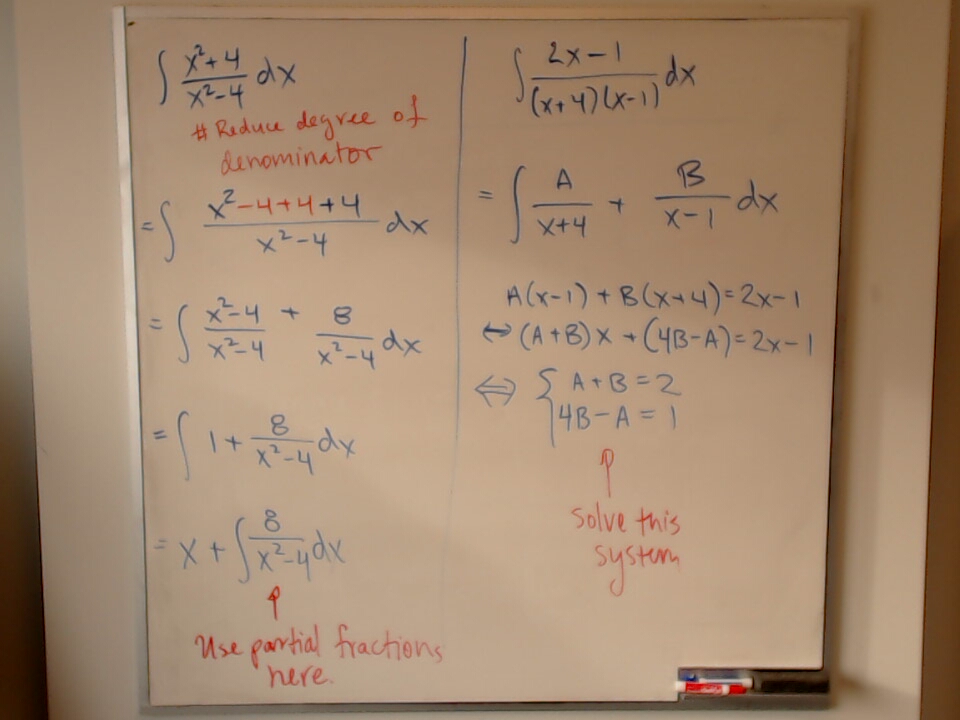 ∫ x²+4 / x²-4 dx
# Reduce degree of
denominator
= ∫ x²-4+4+4 / x²-4 dx
= ∫ x²-4 / x²-4 + 8 / x²-4 dx
= ∫ 1 + 8 / x²-4 dx
= x + ∫ 8 / x²-4 dx
↑
Use partial fractions
here.
∫ 2x-1 / (x+4)(x-1) dx
= ∫ A / x+4 + B / x-1 dx
A(x-1) + B(x+4) = 2x-1
↔ (A+B)x + (4B-A) = 2x-1
⇔ { A+B = 2
4B-A = 1
↑
Solve this
system